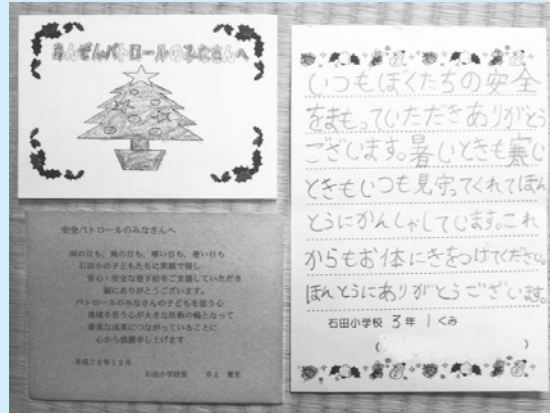 あんぜんパトロールのみなさんへ
安全パトロールのみなさんへ
雨の日も、風の日も、寒い日も、暑い日も
石田小の子どもたちに笑顔で接し
安心・安全な登下校をご支援していただき
誠にありがとうございます。
パトロールのみなさんの子どもを思う心
地域を思う心が大きな活動の輪となって
着実な成果につながっていることに
心から感謝申し上げます
平成20年12月
石田小学校長
いつもぼくたちの安全
をまもっていただきありがとう
ございます。暑いときも寒い
ときもいつも見守ってくれてほん
とうにかんしゃしています。これ
からもお体にきをつけてください。
ほんとうにありがとうございます。
石田小学校 3年 1くみ
( )